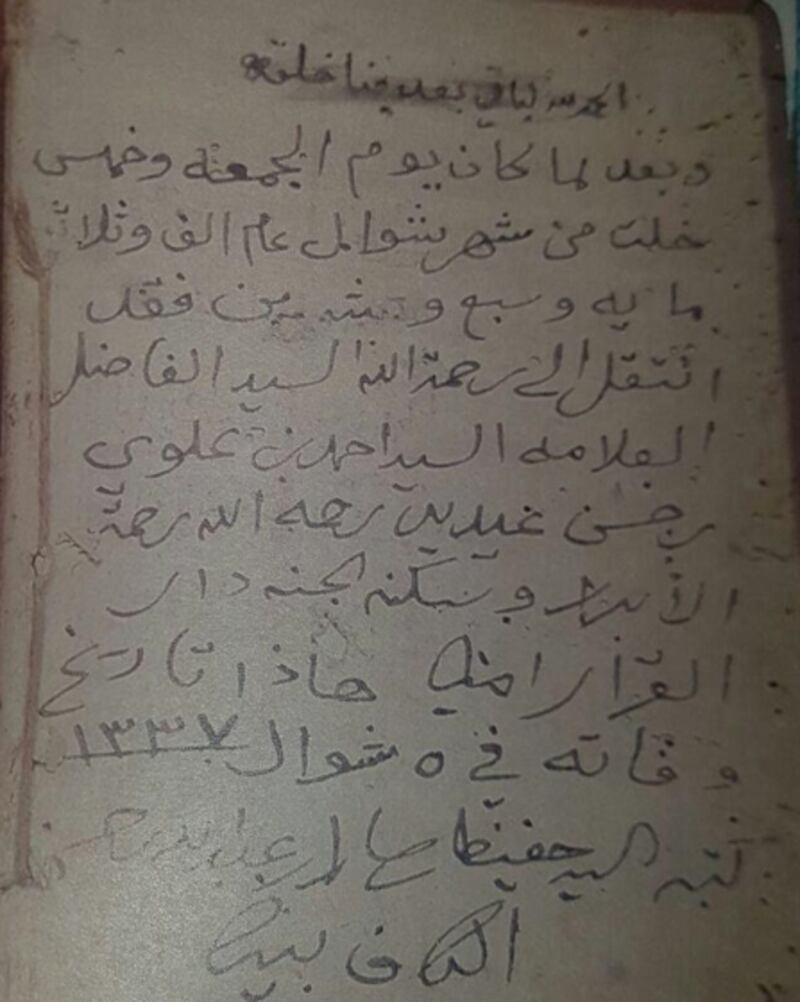 الحمد لله الباقي بعد فنا خلقه
وبعد لما كان يوم الجمعه وخمس
خلت من شهر شوال عام الف وثلاث
مايه وسبع و فقد
انتقل الى رحمة الله السيد الفاضل
العلامه السيد احمد بن علوي
بن حسن عيديد رحمه الله رحمة
الأبرار وسكنه الجنه دار
القرار امين هاذا تاريخ
وفاته في ٥ شوال ١٣٣٧
كتبه السيد حفيظ
الكاف بيده